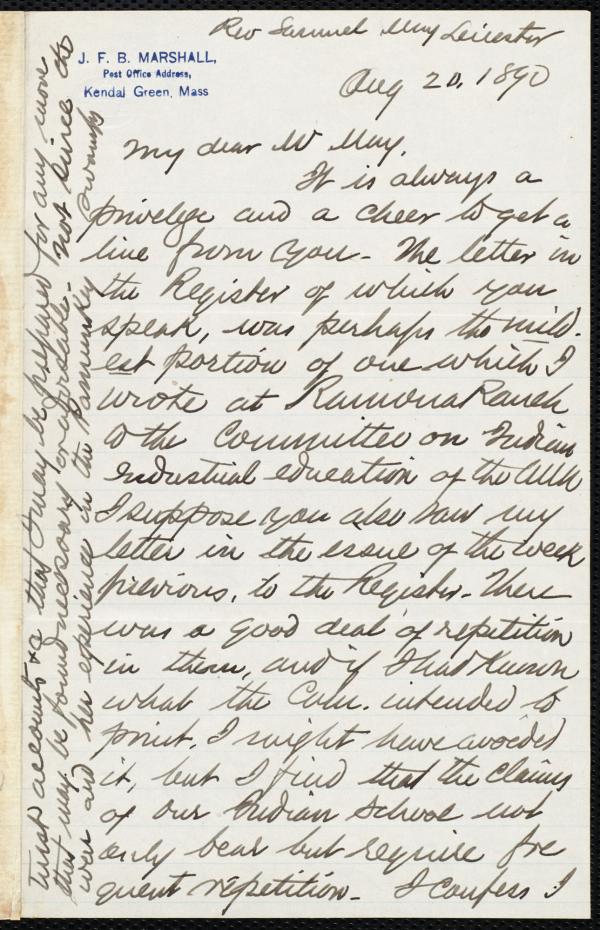 Rev Samuel May Leicester
J. F. B. MARSHALL,
Post Office Address,
Kendal Green, Mass
Aug 20, 1890
My dear Mr May,
It is always a
privelege and a cheer to get a
line from you - The letter in
the Register of which you
speak, was perhaps the mild-
est portion of one which I
wrote at Ramona Ranch
to the Committee on Indian
Industrial education of the AUA
I suppose you also saw my
letter in the issue of the week
previous, to the Register. There
was a good deal of repetition
in them, and if I had known
what the Com. intended to
print, I might have avoided
it, but I find that the claims
of our Indian School not
only bear but require fre
quent repetition - I confess I
trust accounts &c that I may be prepared for any move
that may be found necessary or advisable - not since the
war and her experience in the Pamunkey swamps